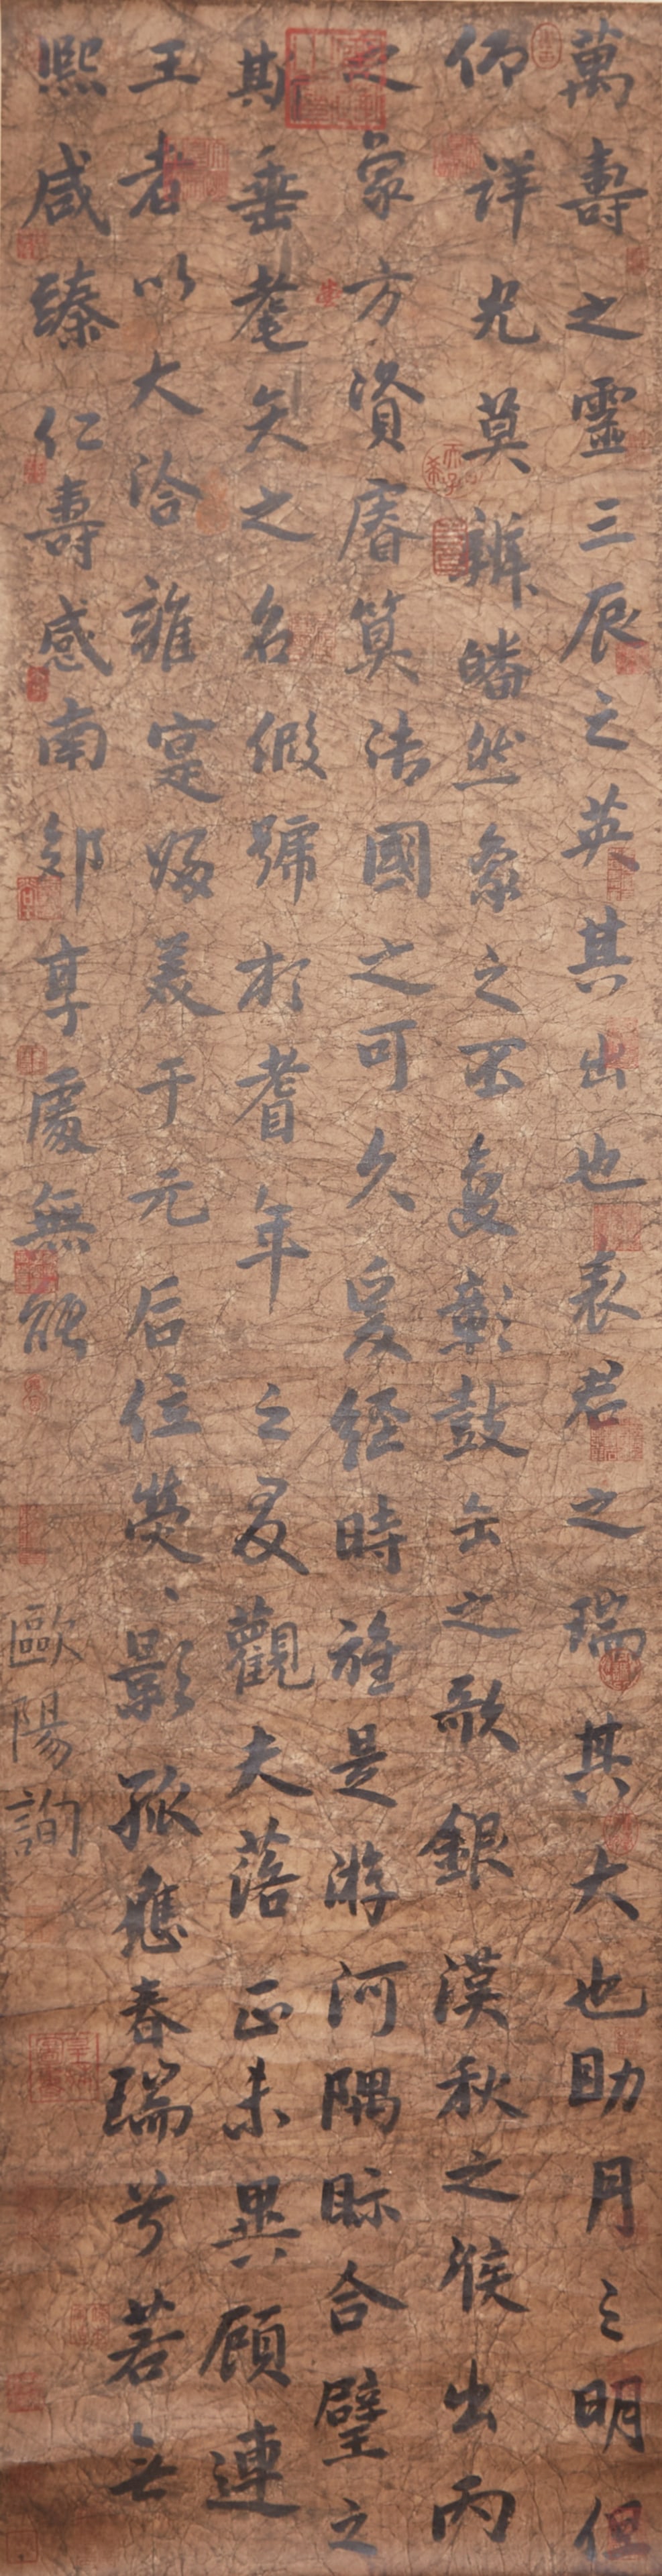 萬壽之靈三辰之英其出也表君之瑞其大也助月之明但
仰祥光莫辨皤然象之不爽彰鼓缶之歌銀漢秋之候出丙
之象方資睿算法國之可久爰經時旌是游河隅眎合璧之
斯垂耄矣之名假號於耆年之友觀夫落正未異顧連
王者以大洽雖寔婺美于元后位熒影孤應春瑞兮若無
熙咸臻仁壽感南郊享處無
歐陽詢